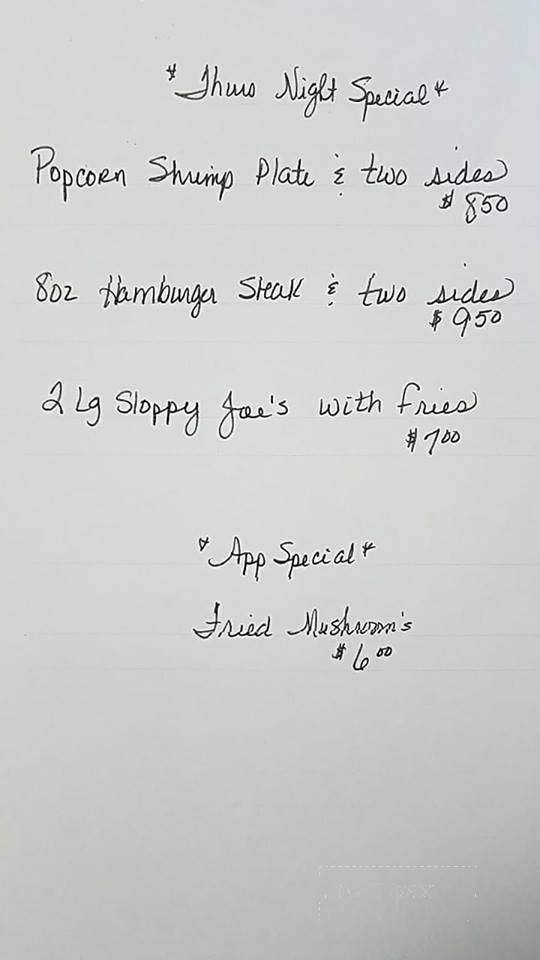 * Thurs Night Special *
Popcorn Shrimp Plate & two sides
$ 850
8oz Hamburger Steak & two sides
$ 950
2 Lg Sloppy Joe's with fries
$ 700
* App Special *
Fried Mushroom's
$ 600